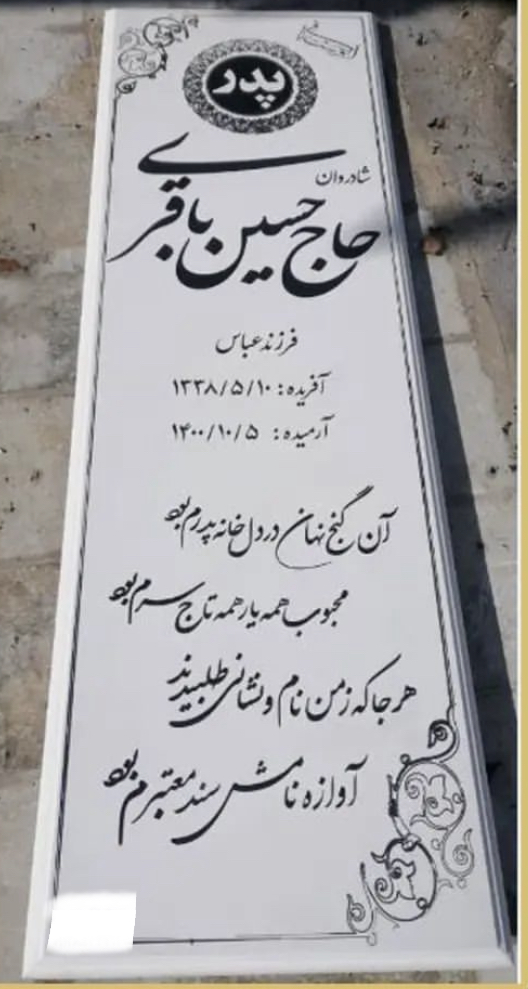 پدر
شادروان
حاج حسین باقری
فرزند عباس
آفریده: ۱۳۳۸/۵/۱۰
آرمیده: ۱۴۰۰/۱۰/۵
آن گنج نهان در دل خانه پدرم بود
محبوب همه یار همه تاج سرم بود
هر جا که ز من نام و نشانی طلبیدند
آوازه نامش سند معتبرم بود